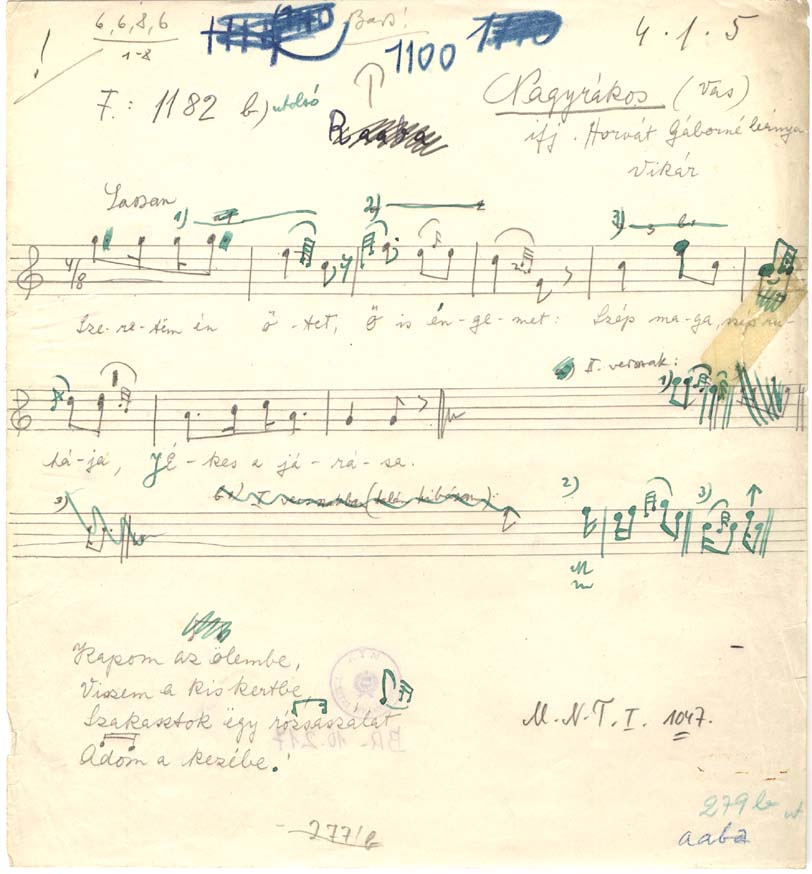 6,6,8,6
1-8
!
Bars!
1100
4 · 1 · 5
F.: 1182 b) utolsó
Nagyrákos (Vas)
ifj. Horvát Gáborné leánya
Vikár
Lassan
1)
2)
3)
4/8
Sze-re-tëm én ő-tet, Ő is én-ge-met: Szép ma-ga, szép ru-
II. versszak:
1)
há-ja, JÉ-kes a já-rá-sa.
3)
2)
3)
Kapom az ölembe,
Viszem a kis kertbe,
Szakasztok ëgy rózsaszálat
Adom a kezébe!
BR-10.217
M.N.T. I. 1047.
277/b
279 b
aaba